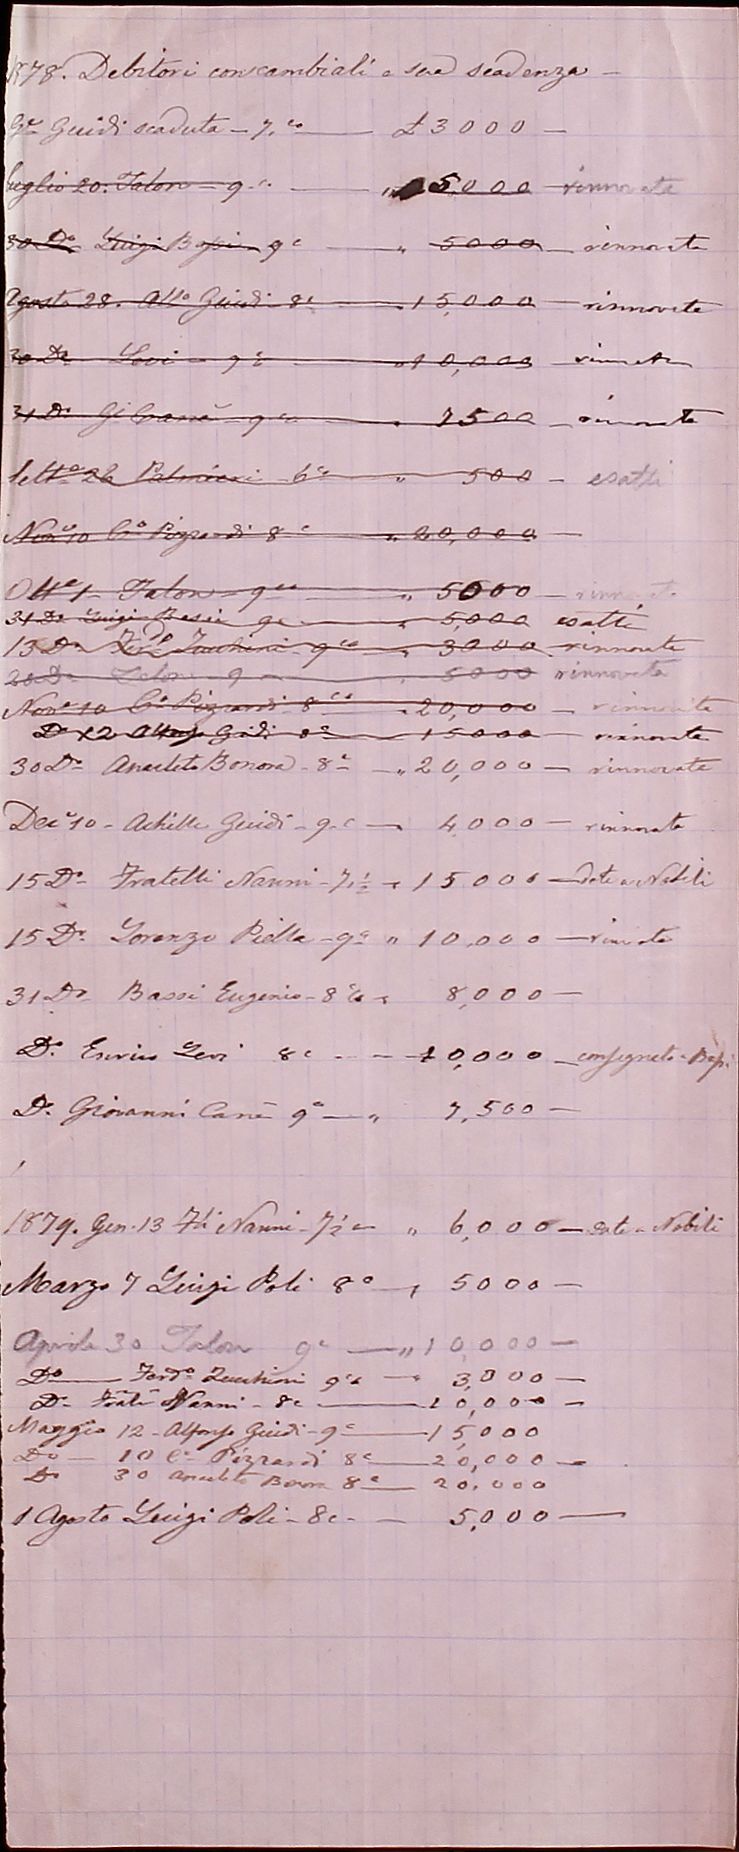 1878. Debitori con cambiali a sua scadenza —
Gue Guidi scaduta — 7. co — £ 3000 —
luglio 20. Talon — 9 c. — " 5,000 — rinnovata
30 Do Luigi Bassi — 9 c — " 5000 — rinnovata
Agosto 28. Alfo Guidi — 8c — " 15,000 — rinnovata
30 Do Levi — 9 c — " 10,000 —
31 Do Gi Canè — 9 co — " 7500 — rinnovata
Sette 26 Palmieri — 6 c — " 500 — esatti
Nove 10 Co Pizzardi 8 c — " 20,000 —
Otte 1 — Talon — 9 co — " 5000 — rinnovata
31 Do Luigi Bassi 9c — " 5,000 esatti
15 Do Ferdo Zucchini — 9 co — " 3000 — rinnovata
20 Do Talon — 9 — 5000 rinnovata
Nove 10 Co Pizzardi — 8 co — " 20,000 — rinnovata
Do 12 Alfonso Guidi — 8c — 15000 — rinnovata
30 Do Anacleto Bonora — 8 c — " 20,000 — rinnovata
Dece 10 — Achille Guidi — 9 c — " 4,000 — rinnovata
15 Do Fratelli Nanni — 7 1/2 — " 15,000 — date a Nobili
15 Do Lorenzo Piella — 9 c " 10,000 —
31 Do Bassi Eugenio — 8 co — " 8,000 —
Do Enrico Levi 8 c — 10,000 — consegnata a Bassi
Do Giovanni Canè 9 c — " 7,500 —
1879. Gen. 13 Flli Nanni — 7 1/2 c — " 6,000 — date a Nobili
Marzo 7 Luigi Poli 8 c — " 5000 —
Aprile 30 Talon 9 c — " 10,000 —
Do — Ferdo Zucchini 9 co — " 3,000 —
Do Fratli Nanni — 8 c — 10,000 —
Maggio 12 — Alfonso Guidi — 9 c — 15,000
Do — 10 Ce Pizzardi 8 c — 20,000 —
Do 30 Anacleto Bonora 8 c — 20,000
1 Agosto Luigi Poli — 8 c — 5,000 —